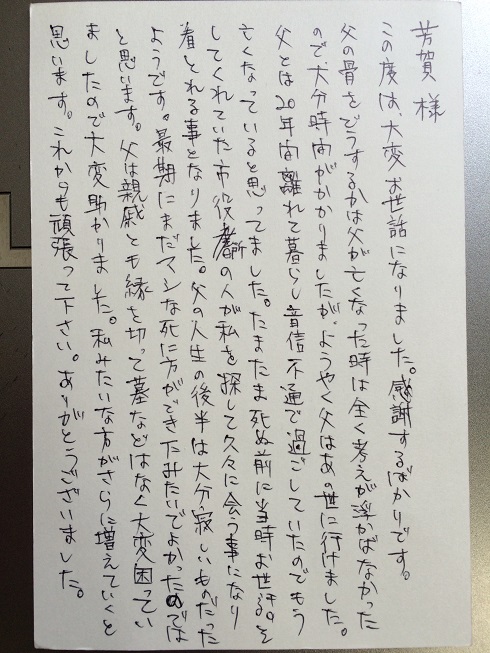 芳賀 様
この度は、大変お世話になりました。感謝するばかりです。
父の骨をどうするかは父が亡くなった時は全く考えが浮かばなかった
ので、大分時間がかかりましたが、ようやく父はあの世に行けました。
父とは20年間離れて暮らし音信不通で過ごしていたのでもう
亡くなっていると思ってました。たまたま死ぬ前に当時お世話を
してくれていた市役所の人が私を探して久々に会う事になり
看とれる事となりました。父の人生の後半は大分寂しいものだった
ようです。最期にまだマシな死に方ができたみたいでよかったのでは
と思います。父は親戚とも縁を切って墓などはなく大変困ってい
ましたので大変助かりました。私みたいな方がさらに増えていくと
思います。これからも頑張って下さい。ありがとうございました。